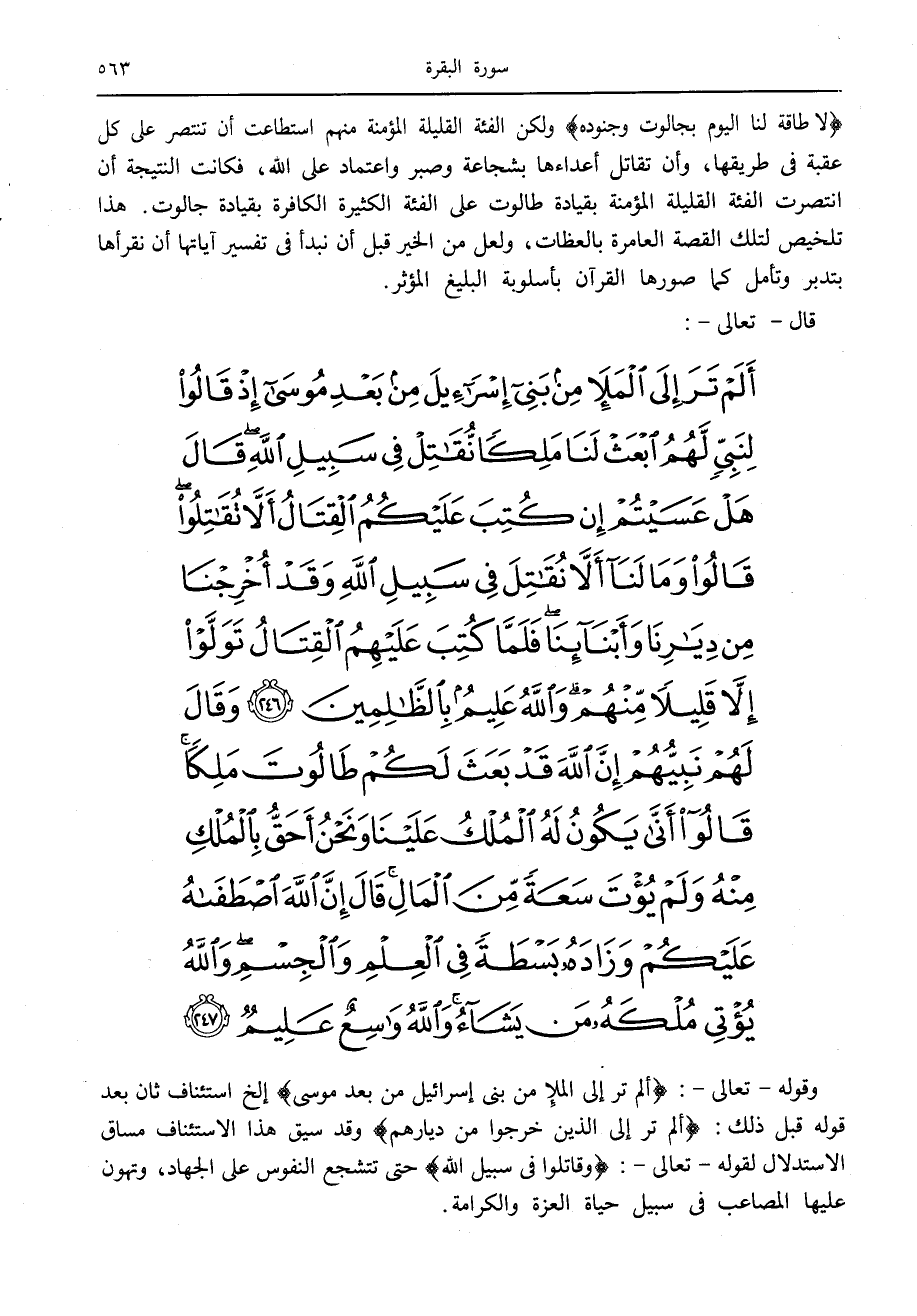 سورة البقرة ٥٦٣
﴿لا طاقة لنا اليوم بجالوت وجنوده﴾ ولكن الفئة القليلة المؤمنة منهم استطاعت أن تنتصر على كل
عقبة فى طريقها، وأن تقاتل أعداءها بشجاعة وصبر واعتماد على الله، فكانت النتيجة أن
انتصرت الفئة القليلة المؤمنة بقيادة طالوت على الفئة الكثيرة الكافرة بقيادة جالوت. هذا
تلخيص لتلك القصة العامرة بالعظات، ولعل من الخير قبل أن نبدأ فى تفسير آياتها أن نقرأها
بتدبر وتأمل كما صورها القرآن بأسلوبة البليغ المؤثر.
قال - تعالى - :
أَلَمْ تَرَ إِلَى ٱلْمَلَإِ مِنۢ بَنِىٓ إِسْرَٰٓءِيلَ مِنۢ بَعْدِ مُوسَىٰٓ إِذْ قَالُوا۟
لِنَبِىٍّ لَّهُمُ ٱبْعَثْ لَنَا مَلِكًا نُّقَٰتِلْ فِى سَبِيلِ ٱللَّهِ ۖ قَالَ
هَلْ عَسَيْتُمْ إِن كُتِبَ عَلَيْكُمُ ٱلْقِتَالُ أَلَّا تُقَٰتِلُوا۟ ۖ
قَالُوا۟ وَمَا لَنَآ أَلَّا نُقَٰتِلَ فِى سَبِيلِ ٱللَّهِ وَقَدْ أُخْرِجْنَا
مِن دِيَٰرِنَا وَأَبْنَآئِنَا ۖ فَلَمَّا كُتِبَ عَلَيْهِمُ ٱلْقِتَالُ تَوَلَّوْا۟
إِلَّا قَلِيلًا مِّنْهُمْ ۗ وَٱللَّهُ عَلِيمٌۢ بِٱلظَّٰلِمِينَ ﴿٢٤٦﴾ وَقَالَ
لَهُمْ نَبِيُّهُمْ إِنَّ ٱللَّهَ قَدْ بَعَثَ لَكُمْ طَالُوتَ مَلِكًا ۚ
قَالُوٓا۟ أَنَّىٰ يَكُونُ لَهُ ٱلْمُلْكُ عَلَيْنَا وَنَحْنُ أَحَقُّ بِٱلْمُلْكِ
مِنْهُ وَلَمْ يُؤْتَ سَعَةً مِّنَ ٱلْمَالِ ۚ قَالَ إِنَّ ٱللَّهَ ٱصْطَفَىٰهُ
عَلَيْكُمْ وَزَادَهُۥ بَسْطَةً فِى ٱلْعِلْمِ وَٱلْجِسْمِ ۖ وَٱللَّهُ
يُؤْتِى مُلْكَهُۥ مَن يَشَآءُ ۚ وَٱللَّهُ وَٰسِعٌ عَلِيمٌ ﴿٢٤٧﴾
وقوله - تعالى - : ﴿ألم تر إلى الملإ من بنى إسرائيل من بعد موسى﴾ إلخ استئناف ثان بعد
قوله قبل ذلك : ﴿ألم تر إلى الذين خرجوا من ديارهم﴾ وقد سيق هذا الاستئناف مساق
الاستدلال لقوله - تعالى - : ﴿وقاتلوا فى سبيل الله﴾ حتى تتشجع النفوس على الجهاد، وتهون
عليها المصاعب فى سبيل حياة العزة والكرامة.